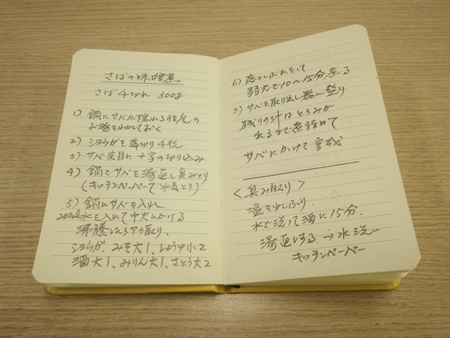 さばの味噌煮
さば4切れ 300g
1) 鍋にサバが隠れる程度の
お湯をわかしておく
2) ショウガを薄切り4枚
3) サバ皮目に十字の切り込み
4) 鍋でサバを湯通し臭みとり
(キッチンペーパーで水気とり)
5) 鍋にサバを入れ
200ml水を入れて中火にかける
沸騰したらアク取り
ショウガ、みそ大1、しょうゆ小2
酒大1、みりん大1、さとう大2
6) 落としぶたをして
弱火で10〜15分煮る
7) サバを取り出し器に盛り
残りの汁はとろみが
出るまで煮詰めて
サバにかけて完成
<臭み取り>
塩を少しふり
水で洗って酒に15分
湯通しする→水洗い
キッチンペーパー